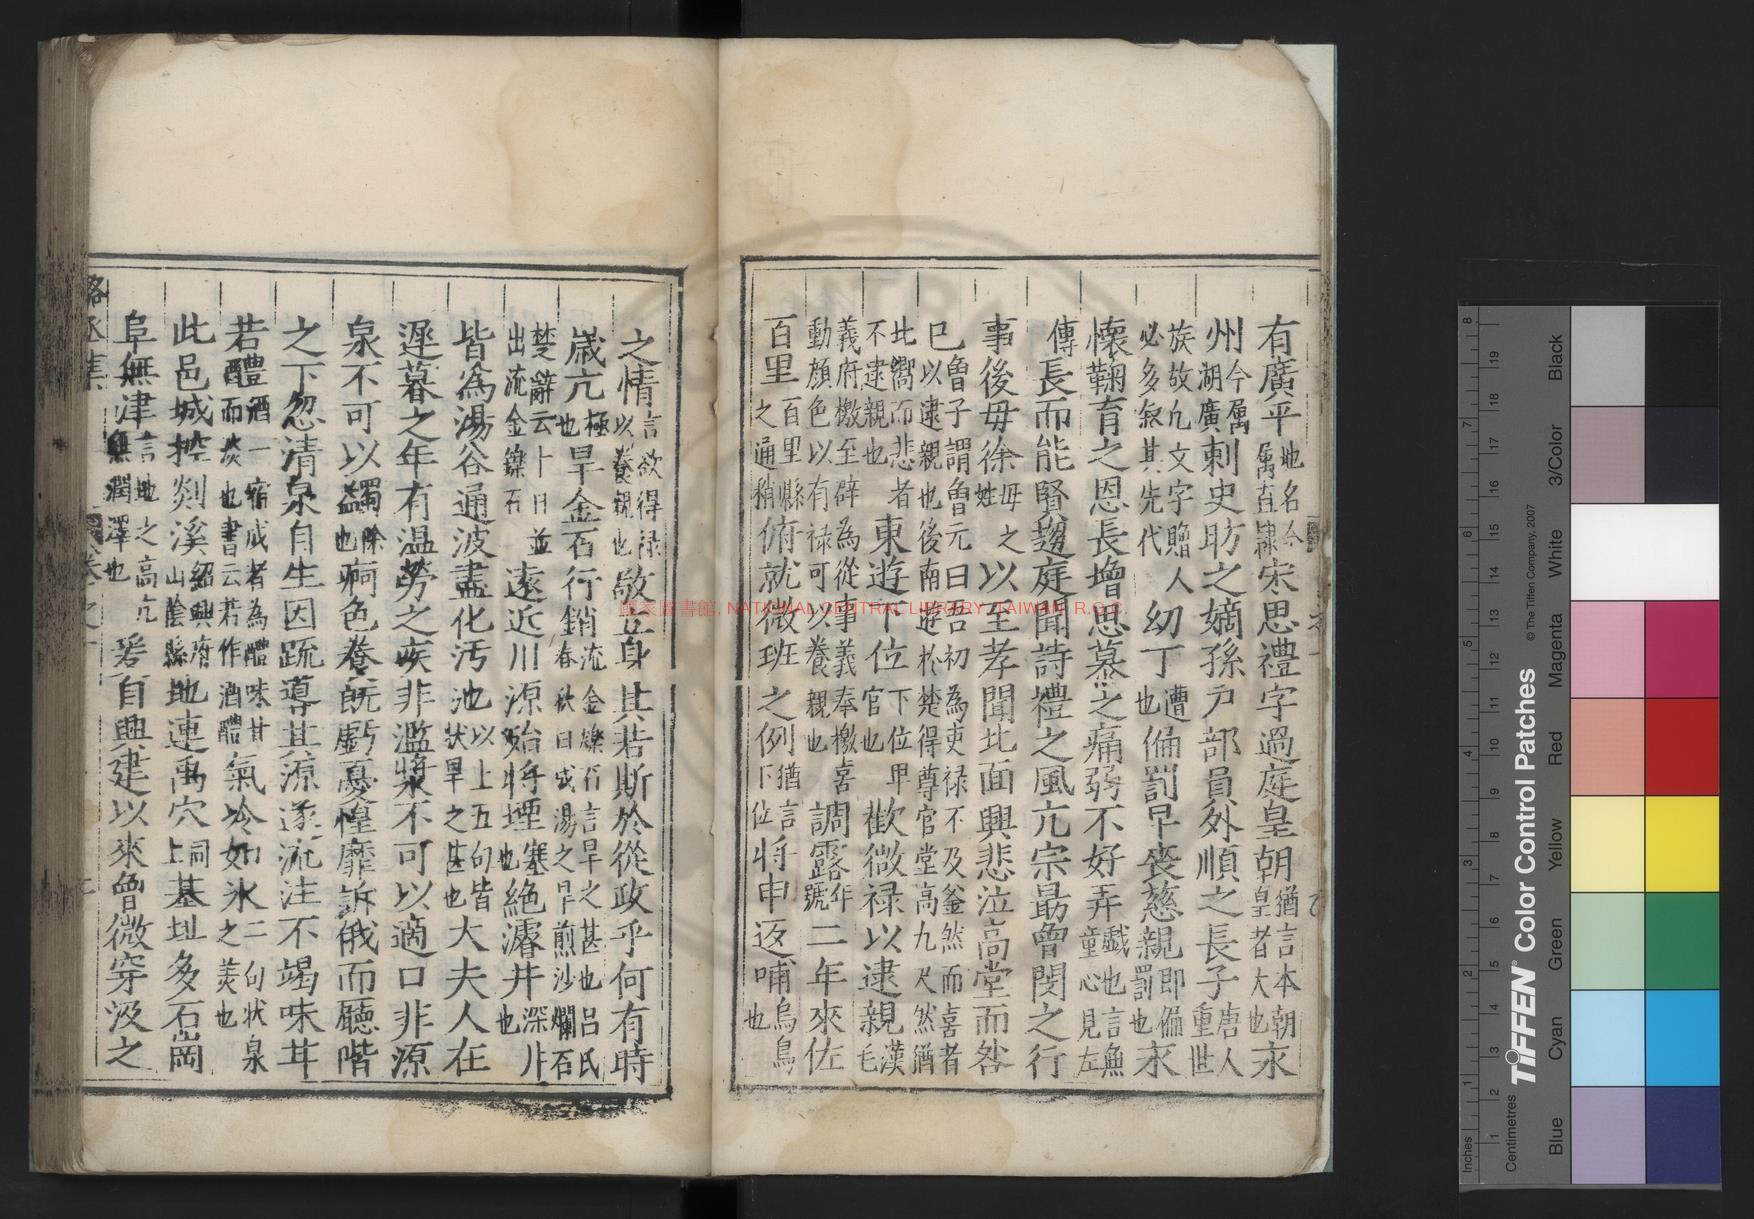 有廣平地名今屬直隸宋思禮字過庭皇朝猶言本朝皇者大也永
州今屬湖廣刺史昉之嫡孫戸部員外順之長子唐人重世
族故凡文字贈人必多敍其先代幼丁遭也偏罰早喪慈親即偏罰也永
懷鞠育之恩長增思慕之痛弱不好弄戲也言無童心見左
傳長而能賢趨庭聞詩禮之風亢宗最曾閔之行
事後毋徐毋之姓以至孝聞北面興悲泣高堂而咎
已魯子謂魯元曰吾初為吏祿不及釜然而喜者以逮親也後南遊於楚得尊官堂高九尺然猶
北嚮而悲者不逮親也東遊下位下位卑官也歡微祿以逮親漢毛
義府檄至辟為從事義奉檄喜動顏色以有祿可以養親也調露年號二年來佐
百里百里縣之通稱俯就微班之例猶言下位將申返哺烏鳥也
之情言欲得祿以養親也敬立身其若斯於從政乎何有時
歲亢極也旱金石行銷流金爍石言旱之甚也呂氏春秋曰成湯之旱煎沙爛石
楚辭云十日並出流金鑠石遠近川源殆將堙塞也絕濬井深井也
皆為湯谷通波盡化汚池以上五句皆狀旱之甚也大夫人在
遲暮之年有温勞之疾非濫漿不可以適口非源
泉不可以蠲除也痾色養既虧憂惶靡訴俄而廳階
之下忽清泉自生因疏導其源遂流注不竭味其
若醴酒一宿成者為醴味甘而淡也書云若作酒醴氣冷如氷二句狀泉之美也
此邑城控剡溪紹興府山陰縣地連禹穴上祠基址多石崗
阜無津言地之高亢無潤澤也爰自興建以來曾微穿汲之
國家圖書館, NATIONAL CENTRAL LIBRARY, TAIWAN, R.O.C.
Inches
Centimetres
1 2 3 4 5 6 7 8
1 2 3 4 5 6 7 8 9 10 11 12 13 14 15 16 17 18 19
TIFFEN® Color Control Patches
© The Tiffen Company, 2007
Blue
Cyan
Green
Yellow
Red
Magenta
White
3/Color
Black